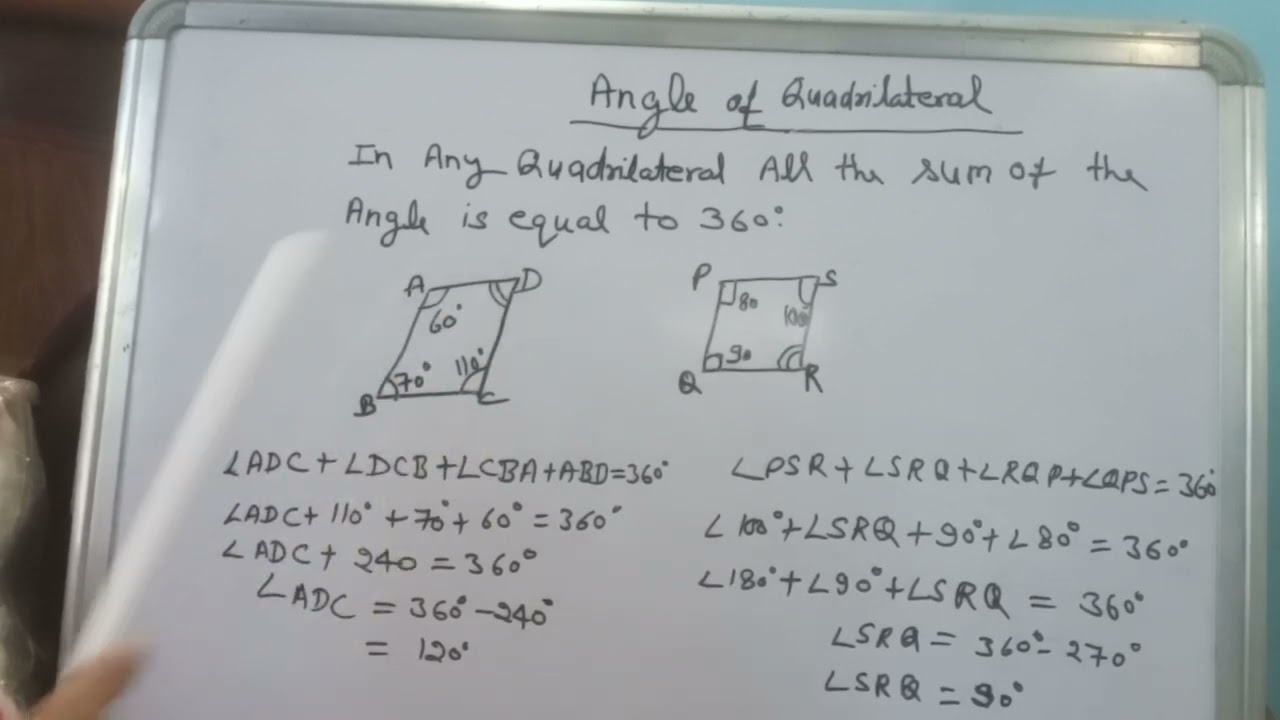 Angle of Quadrilateral
In Any Quadrilateral All the sum of the
Angle is equal to 360°
A D
60°
70° 110°
B C
P S
80 100°
90
Q R
∠ADC + ∠DCB + ∠CBA + ABD = 360°
∠ADC + 110° + 70° + 60° = 360°
∠ADC + 240 = 360°
∠ADC = 360° - 240°
= 120°
∠PSR + ∠SRQ + ∠RQP + ∠QPS = 360°
∠100° + ∠SRQ + 90° + ∠80° = 360°
∠180° + ∠90° + ∠SRQ = 360°
∠SRQ = 360° - 270°
∠SRQ = 90°